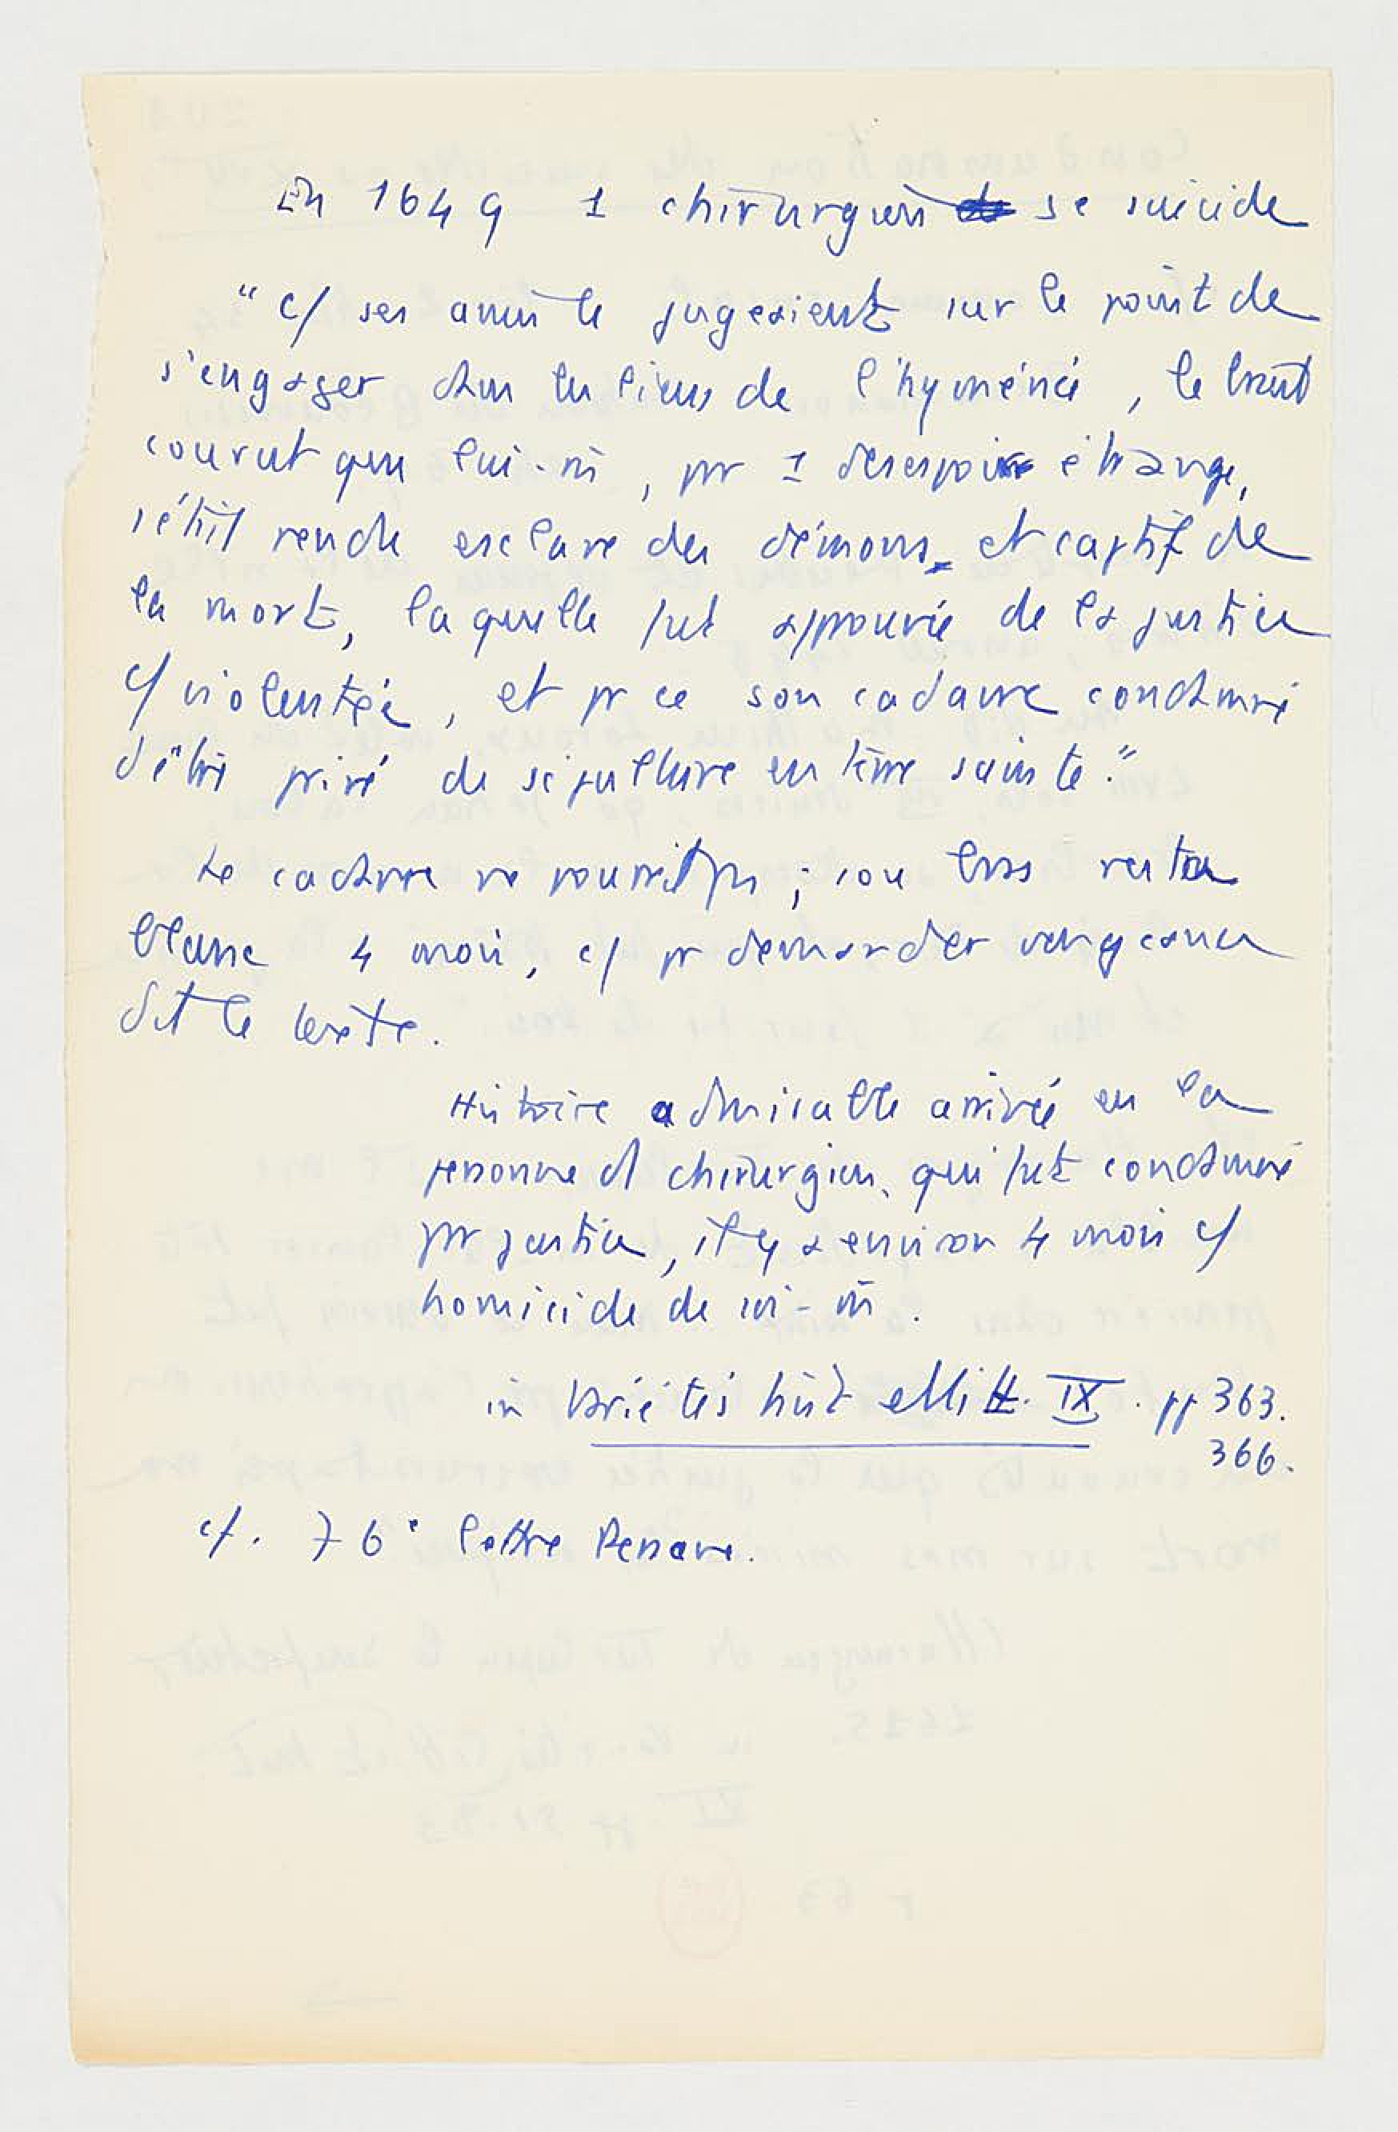 En 1649 1 chirurgien se suicide
"c/ ses amis le jugeaient sur le point de
s'engager dans les liens de l'hyménée, le bruit
courut que lui-m̄, pr 1 desespoir étrange,
s'était rendu esclave des démons et captif de
la mort, laquelle fut approuvée de la justice
c/ violentée, et pr ce son cadavre condamné
d'être privé de sépulture en terre sainte."
Le cadavre ne pourrit ps ; son bras resta
blanc 4 mois, c/ pr demander vengeance
dit le texte.
Histoire admirable arrivée en la
personne d1 chirurgien, qui fut condamné
pr justice, il y a environ 4 mois c/
homicide de soi-m̄.
in Variétés hist et litt. IX. pp 363.
366.
cf. 76e lettre Persane.